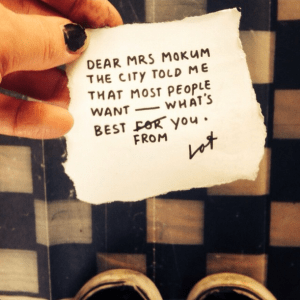 DEAR MRS MOKUM
THE CITY TOLD ME
THAT MOST PEOPLE
WANT — WHAT'S
BEST FOR YOU.
FROM
Lot